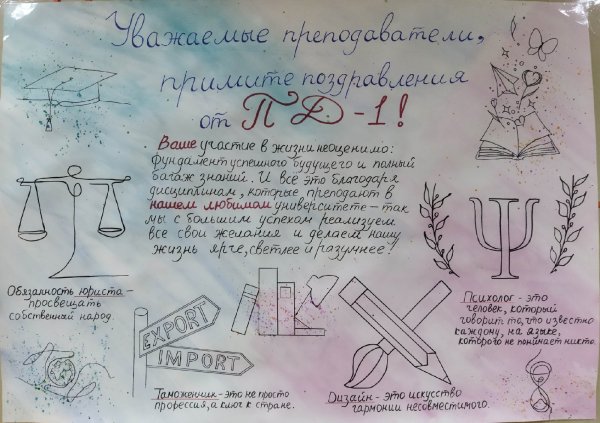 Уважаемые преподаватели,
примите поздравления
от ПД-1!
Ваше участие в жизни неоценимо:
фундамент успешного будущего и полный
багаж знаний. И всё это благодаря
дисциплинам, которые преподают в
нашем любимом университете – так
мы с большим успехом реализуем
все свои желания и делаем нашу
жизнь ярче, светлее и разумнее!
Обязанность юриста –
просвещать
собственный народ.
EXPORT
IMPORT
Таможенник – это не просто
профессия, а ключ к стране.
Дизайн – это искусство
гармонии несовместимого.
Психолог – это
человек, который
говорит то, что известно
каждому, на языке,
которого не понимает никто.